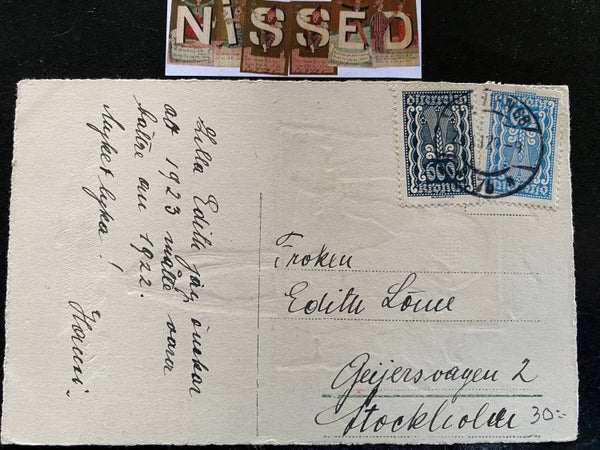 NiSSED
Lilla Edith jag önskar
att 1923 måtte vara
bättre än 1922.
Mycket lycka!
Österreich
600
Kronen
Fröken
Edith
Geijersvagen 2
Stockholm
30:-